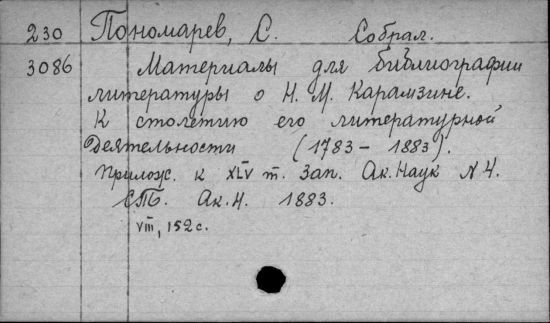 230 Пономарев, С. Собрал.
3086 Материалы для библиографии
литературы о Н. М. Карамзине.
К столетию его литературной
Деятельности (1783 - 1883).
Прилож. к XLV т. Зап. Ак. Наук N 4.
СПБ. Ак. Н. 1883.
VIII, 152 с.